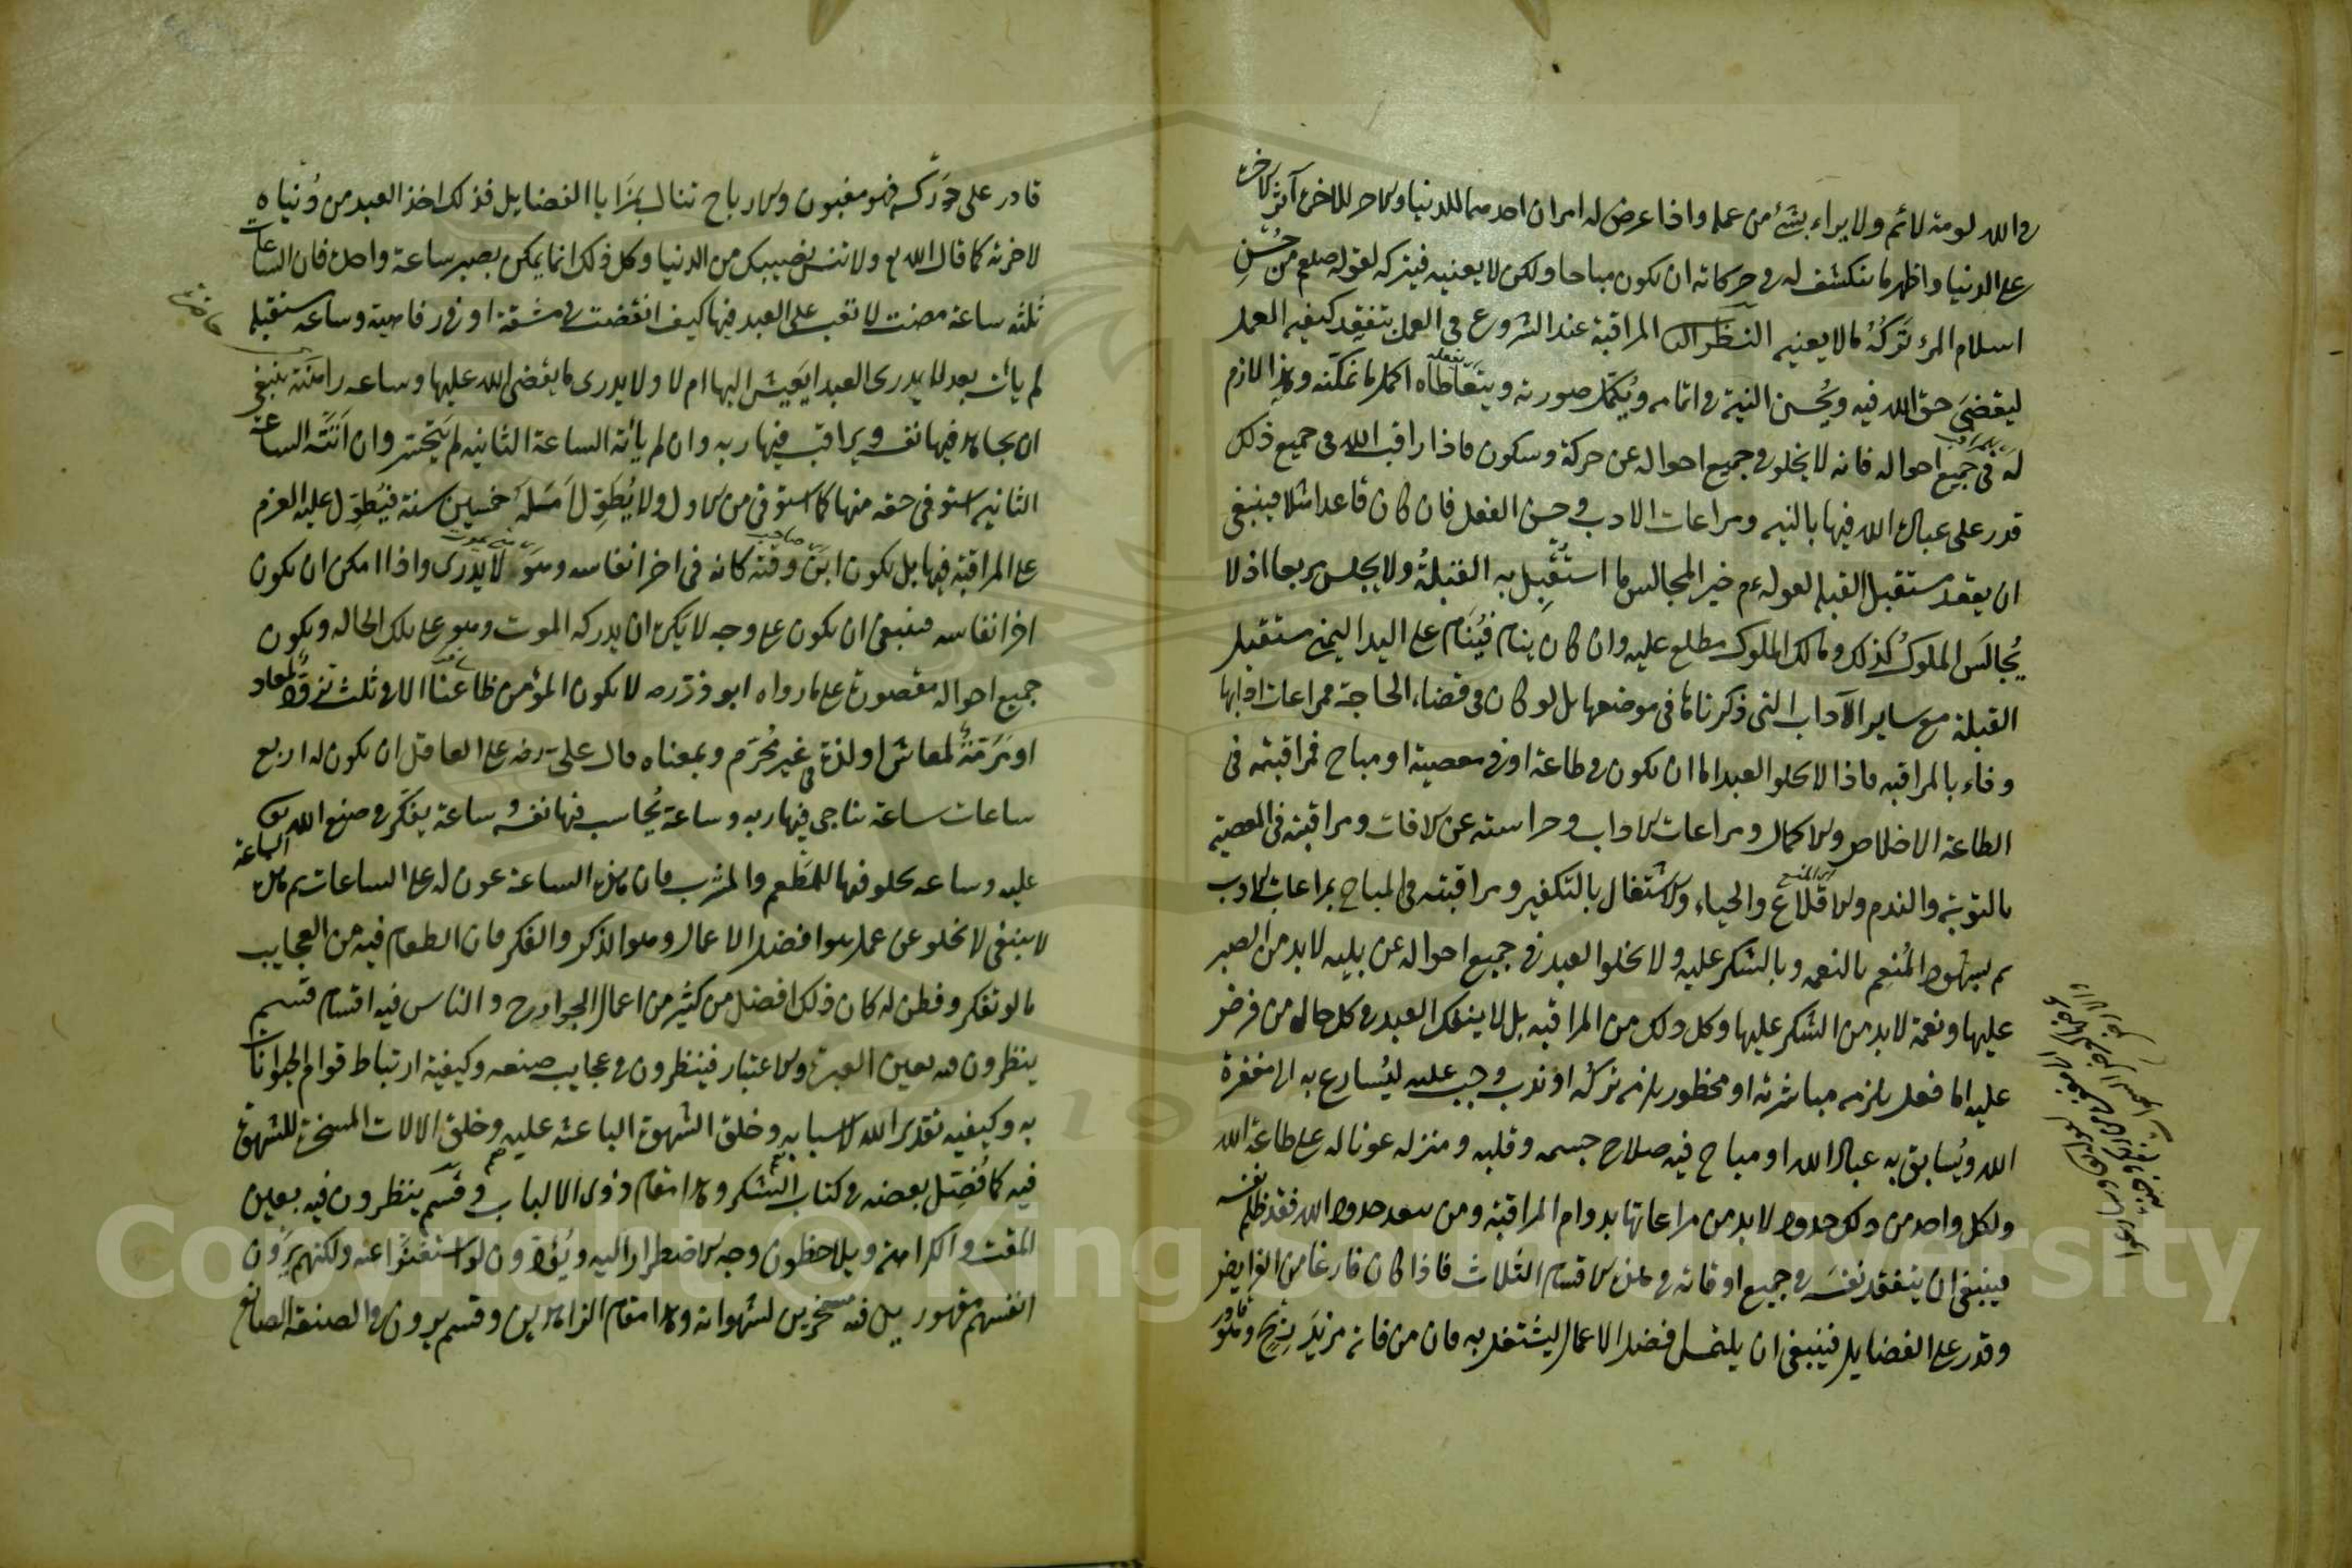 فى الله لومة لائم ولا يراءى بشئ من عمله واذا عرض له امران احدهما للدنيا والاخر للاخرة آثر الاخرة
على الدنيا واظهر ما ينكشف له فى حركاته ان يكون مباحا ولكن لا يعنيه فيتركه لقوله صلعم من حُسْنِ
اسلام المرء تَرْكُهُ ما لا يعنيه النظر الثانى المراقبة عند الشروع فى العمل بتفقد كيفية العمل
ليقضىَ حق الله فيه ويُحسن النية فى اتمامه ويُكمّل صورته ويتعاطاه اكمل ما يمكنه وهذا لازم
له فى جميع احواله فانه لا يخلو فى جميع احواله عن حركة وسكون فاذا راقب الله فى جميع ذلك
قدر على عبادة الله فيها بالنية ومراعات الادب وحسن الفعل فان كان قاعدا مثلا فينبغى
ان يقعد مستقبل القبلة لقوله عم خير المجالس ما استُقْبِل به القبلةُ ولا يجلس مربعا اذ لا
يُجالَس الملوكُ كذلك ومالك الملوك مطلع عليه وان كان ينام فيَنام على اليد اليمنى مستقبل
القبلة مع ساير الآداب التى ذكرناها فى موضعها بل لو كان فى قضاء الحاجة فمراعات ادابها
وفاء بالمراقبه فاذا لا يخلو العبد اما ان يكون فى طاعة او فى معصية او مباح فمراقبته فى
الطاعة الاخلاص والاكمال ومراعات الاداب وحراسته عن الافات ومراقبته فى المعصية
بالتوبة والندم والاقلاع والحياء والاشتغال بالتكفير ومراقبته فى المباح بمراعات الادب
ثم بشهود المُنعِم بالنعمه وبالشكر عليه ولا يخلو العبد فى جميع احواله عن بليه لابد من الصبر
عليها ونعمة لابد من الشكر عليها وكل ذلك من المراقبه بل لا ينفك العبد فى كل حاله من فرض
عليه اما فعل يلزمه مباشرته او محظور يلزمه تركُه او ندب وجب عليه ليُسارع به الى مغفرة
الله ويُسابق به عباد الله او مباح فيه صلاح جسمه وقلبه ومنزله عونا له على طاعة الله
ولكل واحد من ذلك حدود لابد من مراعاتها بدوام المراقبة ومن يتعد حدود الله فقد ظلم نفسه
فينبغى ان يتفقد نفسَه فى جميع اوقاته فى هذه الاقسام الثلاث فاذا كان فارغا من الفرايض
وقدر على الفضايل فينبغى ان يلتمس افضل الاعمال ليشتغل به فان من فاته مزيدُ ربحٍ وهو
قادر على دَرْكه فهو مغبون والارباح تنال بمَزَايا الفضايل فذلك اخذ العبد من دُنياه
لاخرته كما قال الله تع ولا تنس نصيبك من الدنيا وكل ذلك انما يمكن بصبر ساعة واحدة فان الساعات
ثلثة ساعة مضت لا تعب على العبد فيها كيف انقضت فى مشقة او فى رفاهية وساعه مستقبله
لم يأت بعد لا يدرى العبد ايَعيش اليها ام لا ولا يدرى ما يقضى الله عليها وساعه راهنة ينبغى
ان يجاهد فيها نفسه ويراقب فيها ربه وان لم يأته الساعة الثانيه لم يَتحسّر وان اَتَتْه الساعة
الثانيه استوفى حقه منها كما استوفى من الاول ولا يُطَوِّل اَمَله خمسين سنة فيَطول عليه العزم
على المراقبة فيها بل يكون ابنَ وقته كانه فى اخر انفاسه وهو لا يدرى واذا امكن ان يكون
اخر انفاسه فينبغى ان يكون على وجه لا يكره ان يدركه الموت وهو على تلك الحاله ويكون
جميع احواله مقصورة على ما رواه ابو ذر رضه لا يكون المؤمن ظاعنا الا فى ثلث تزودٍ لمعاد
او مَرَمّةٍ لمعاش او لذة فى غير مُحَرّم وبمعناه قال على رضه على العاقل ان يكون له اربع
ساعات ساعة يناجى فيها ربه وساعة يُحاسب فيها نفسَه وساعة يفكر فى صنع الله تعالى
عليه وساعه يخلو فيها للمَطعم والمشرب فان هذه الساعة عون له على الساعات ثم هذه الساعة
لا ينبغى لا تخلو عن عمل هو افضل الاعمال وهو الذكر والفكر فان الطعام فيه من العجايب
ما لو تفكر وفطن له كان ذلك افضل من كثير من اعمال الجوارح والناس فيه اقسام قسم
ينظرون فيه بعين العبرة والاعتبار فينظرون فى عجايب صنعه وكيفية ارتباط قوام الحيوانات
به وكيفيه تقدير الله لاسبابه وخلق الشهوة الباعثه عليه وخلق الالات المسخرة للشهوة
فيه كما فُصِّل بعضه فى كتاب الشكر وهذا مقام ذوى الالباب وقسم ينظرون فيه بعين
المقت والكراهة ويلاحظون وجه الاضطرار اليه ويَوَدّون لو استغنَوْا عنه ولكنهم يَرَون
انفسهم مقهورين فيه مسخرين لشهواته وهذا مقام الزاهدين وقسم يرون فى الصنعة الصانع